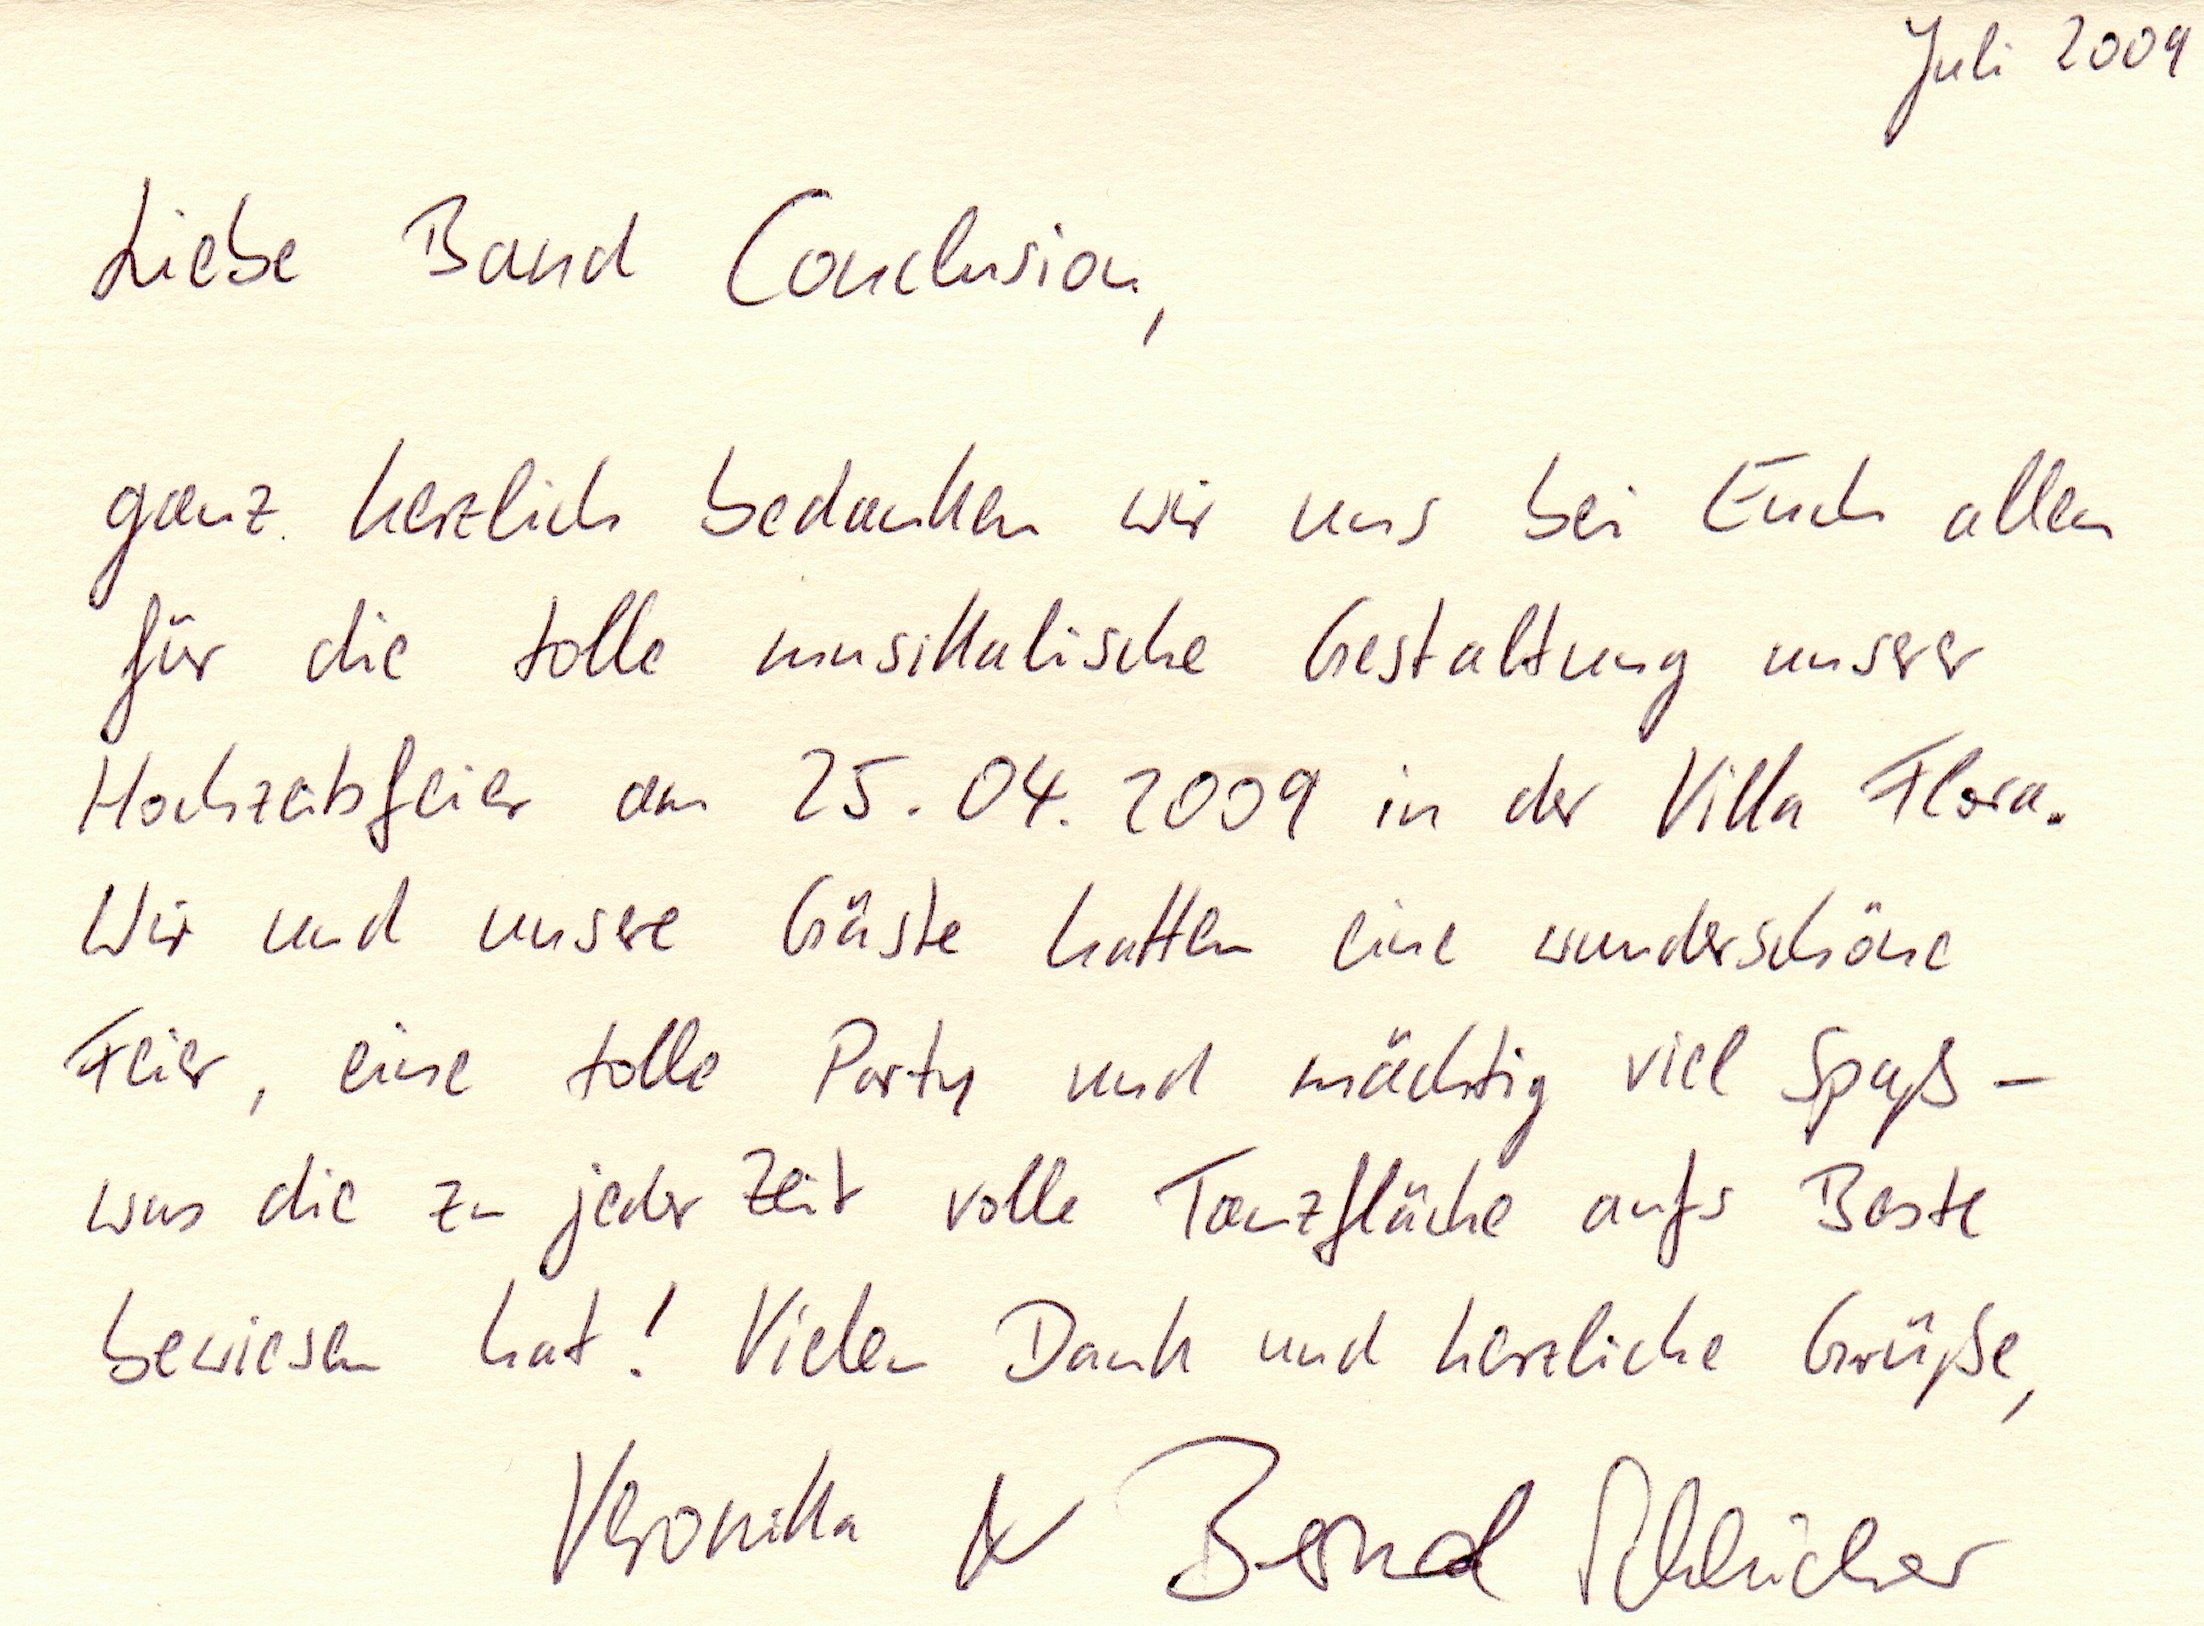 Juli 2009
Liebe Band Conclusion,
ganz herzlich bedanken wir uns bei Euch allen
für die tolle musikalische Gestaltung unserer
Hochzeitsfeier am 25.04.2009 in der Villa Flora.
Wir und unsere Gäste hatten eine wunderschöne
Feier, eine tolle Party und mächtig viel Spaß –
was die zu jeder Zeit volle Tanzfläche aufs Beste
bewiesen hat! Vielen Dank und herzliche Grüße,
Veronika & Bernd